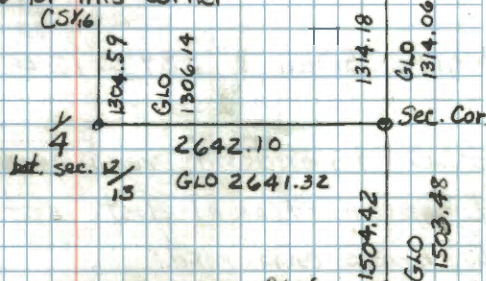 CS 1/16
1304.59
GLO
1306.14
1314.18
GLO
1314.06
Sec. Cor.
1/4
bet. sec. 12/13
2642.10
GLO 2641.32
1504.42
GLO
1503.48